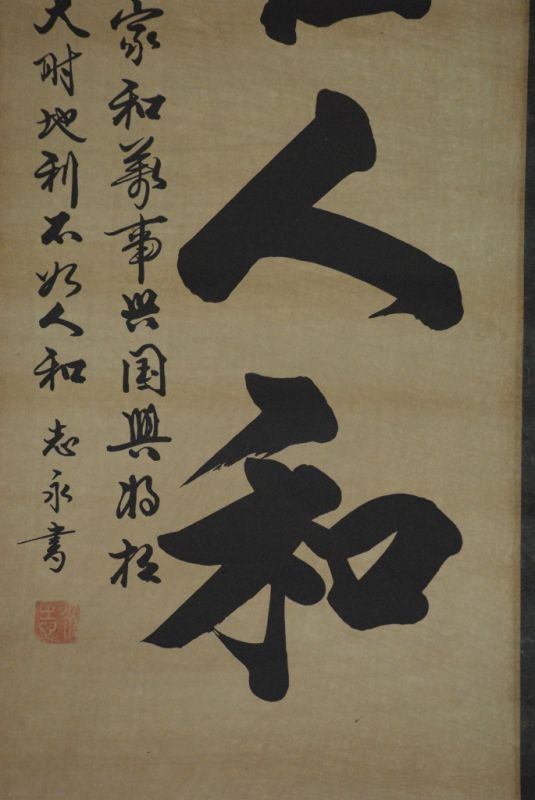 人和
家和萬事兴国興将相
天时地利不如人和 志永書